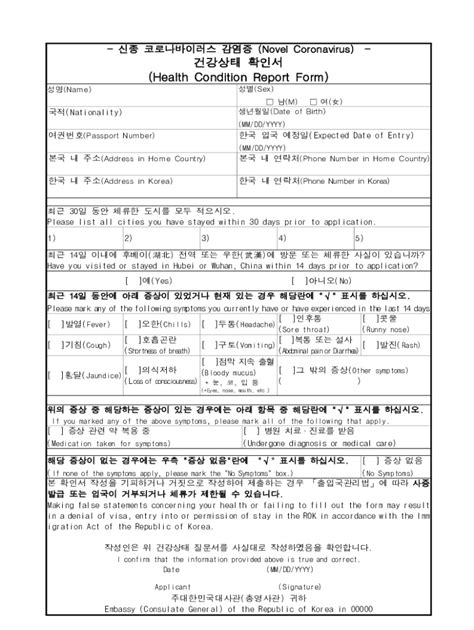 - 신종 코로나바이러스 감염증 (Novel Coronavirus) -
건강상태 확인서
(Health Condition Report Form)
성명(Name) 성별(Sex)
□ 남(M) □ 여(女)
국적(Nationality) 생년월일(Date of Birth)
(MM/DD/YYYY)
여권번호(Passport Number) 한국 입국 예정일(Expected Date of Entry)
(MM/DD/YYYY)
본국 내 주소(Address in Home Country) 본국 내 연락처(Phone Number in Home Country)
한국 내 주소(Address in Korea) 한국 내 연락처(Phone Number in Korea)
최근 30일 동안 체류한 도시를 모두 적으시오.
Please list all cities you have stayed within 30 days prior to application.
1) 2) 3) 4) 5)
최근 14일 이내에 후베이(湖北) 전역 또는 우한(武漢)에 방문 또는 체류한 사실이 있습니까?
Have you visited or stayed in Hubei or Wuhan, China within 14 days prior to application?
[ ]예(Yes) [ ]아니오(No)
최근 14일 동안에 아래 증상이 있었거나 현재 있는 경우 해당란에 "√" 표시를 하십시오.
Please mark any of the following symptoms you currently have or have experienced in the last 14 days
[ ]발열(Fever) [ ]오한(Chills) [ ]두통(Headache) [ ]인후통 [ ]콧물
(Sore throat) (Runny nose)
[ ]기침(Cough) [ ]호흡곤란 [ ]구토(Vomiting) [ ]복통 또는 설사 [ ]발진(Rash)
(Shortness of breath) (Abdominal pain or Diarrhea)
[ ]황달(Jaundice) [ ]의식저하 [ ]점막 지속 출혈 [ ]그 밖의 증상(Other symptoms)
(Loss of consciousness) (Bloody mucus) ( )
* 눈, 코, 입 등
(*Eyes, nose, mouth, etc.)
위의 증상 중 해당하는 증상이 있는 경우에는 아래 항목 중 해당란에 "√" 표시를 하십시오.
If you marked any of the above symptoms, please mark all of the following that apply.
[ ] 증상 관련 약 복용 중 [ ] 병원 치료·진료를 받음
(Medication taken for symptoms) (Undergone diagnosis or medical care)
해당 증상이 없는 경우에는 우측 "증상 없음"란에 "√" 표시를 하십시오. [ ] 증상 없음
(If none of the symptoms apply, please mark the "No Symptoms" box.) (No Symptoms)
본 확인서 작성을 기피하거나 거짓으로 작성하여 제출하는 경우 「출입국관리법」에 따라 사증
발급 또는 입국이 거부되거나 체류가 제한될 수 있습니다.
Making false statements concerning your health or failing to fill out the form may result
in a denial of visa, entry into or permission of stay in the ROK in accordance with the Imm
igration Act of the Republic of Korea.
작성인은 위 건강상태 질문서를 사실대로 작성하였음을 확인합니다.
I confirm that the information provided above is true and correct.
Date (MM/DD/YYYY)
Applicant (Signature)
주대한민국대사관(총영사관) 귀하
Embassy (Consulate General) of the Republic of Korea in 00000